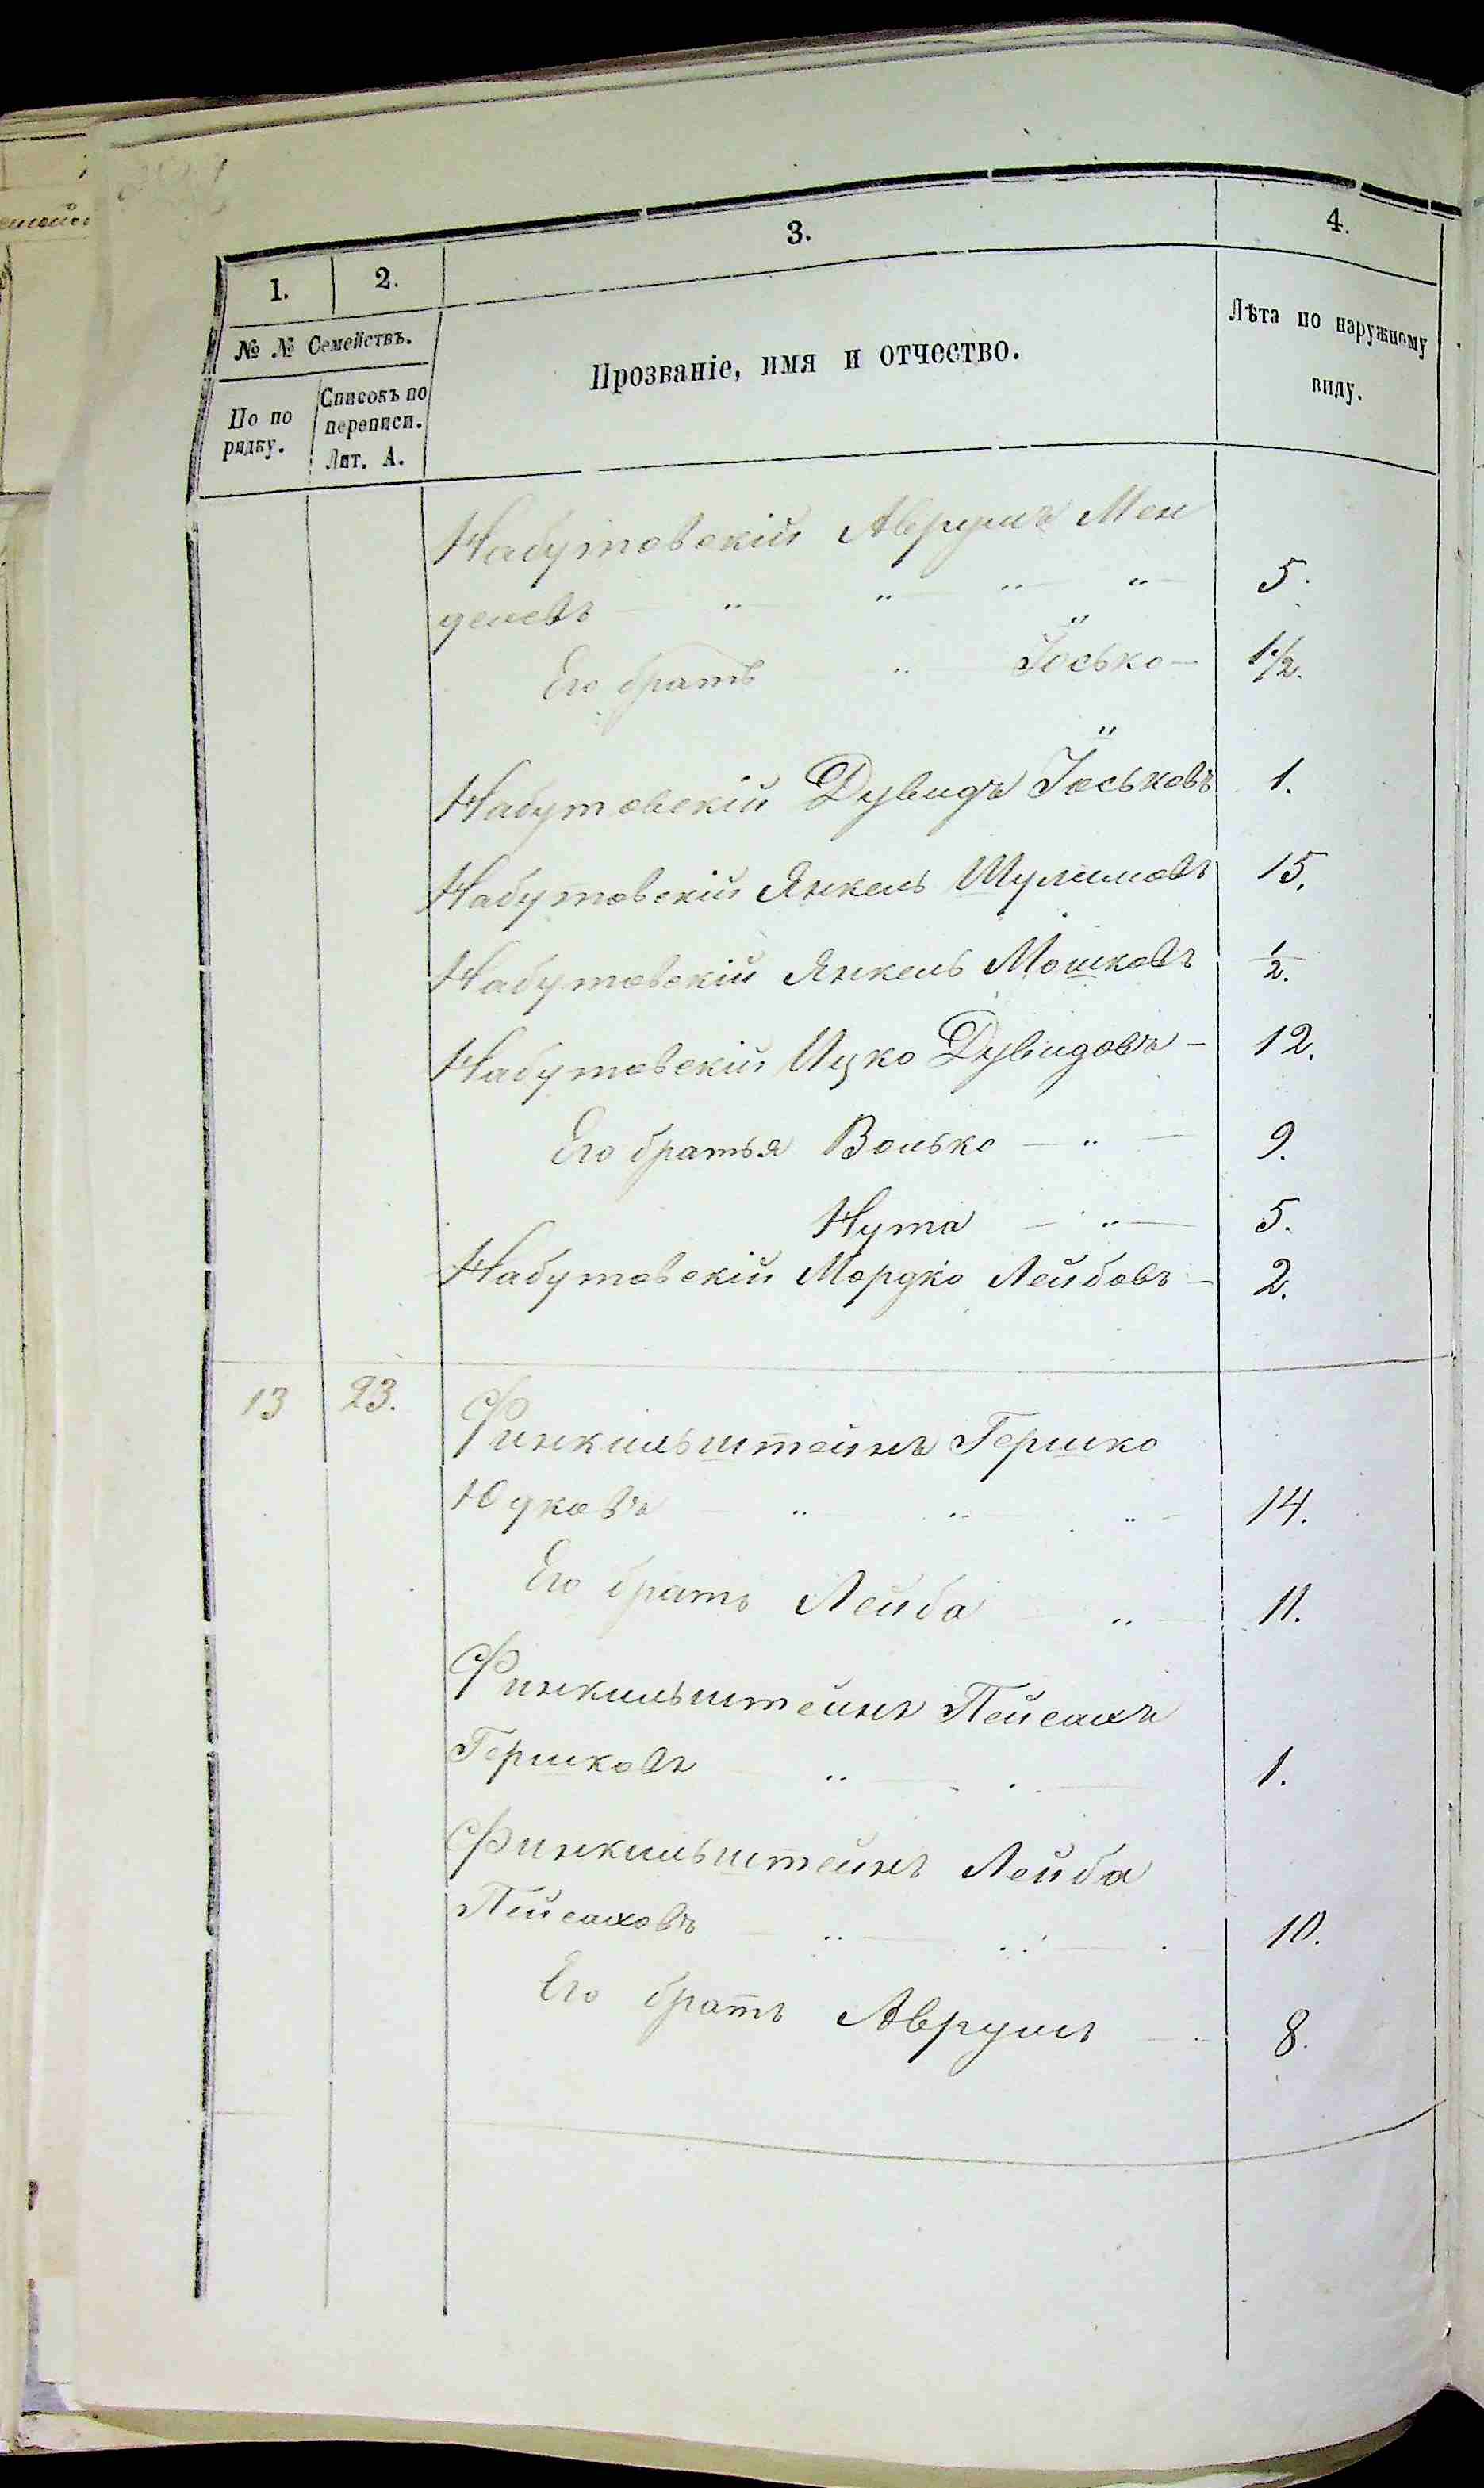 3.
4.
1.
2.
№ № Семействъ.
Прозваніе, имя и отчество.
Лѣта по наружному
виду.
По по
рядку.
Списокъ по
переписи.
Лит. А.
Набутовскій Аврумъ Мен
делевъ — „ — „ — „ — „ — 5.
Его братъ — „ — Іосько — 1½.
Набутовскій Дувидъ Іоськовъ 1.
Набутовскій Янкель Шулимовъ 15.
Набутовскій Янкель Мошковъ ½.
Набутовскій Ицко Дувидовъ — 12.
Его братья Волько — „ — 9.
Нута — „ — 5.
Набутовскій Мордко Лейбовъ — 2.
13 23. Финкильштейнъ Гершко
Юдковъ — „ — „ — „ — 14.
Его братъ Лейба — „ — 11.
Финкильштейнъ Пейсахъ
Гершковъ — „ — „ — 1.
Финкильштейнъ Лейба
Пейсаховъ — „ — „ — 10.
Его братъ Аврумъ — 8.